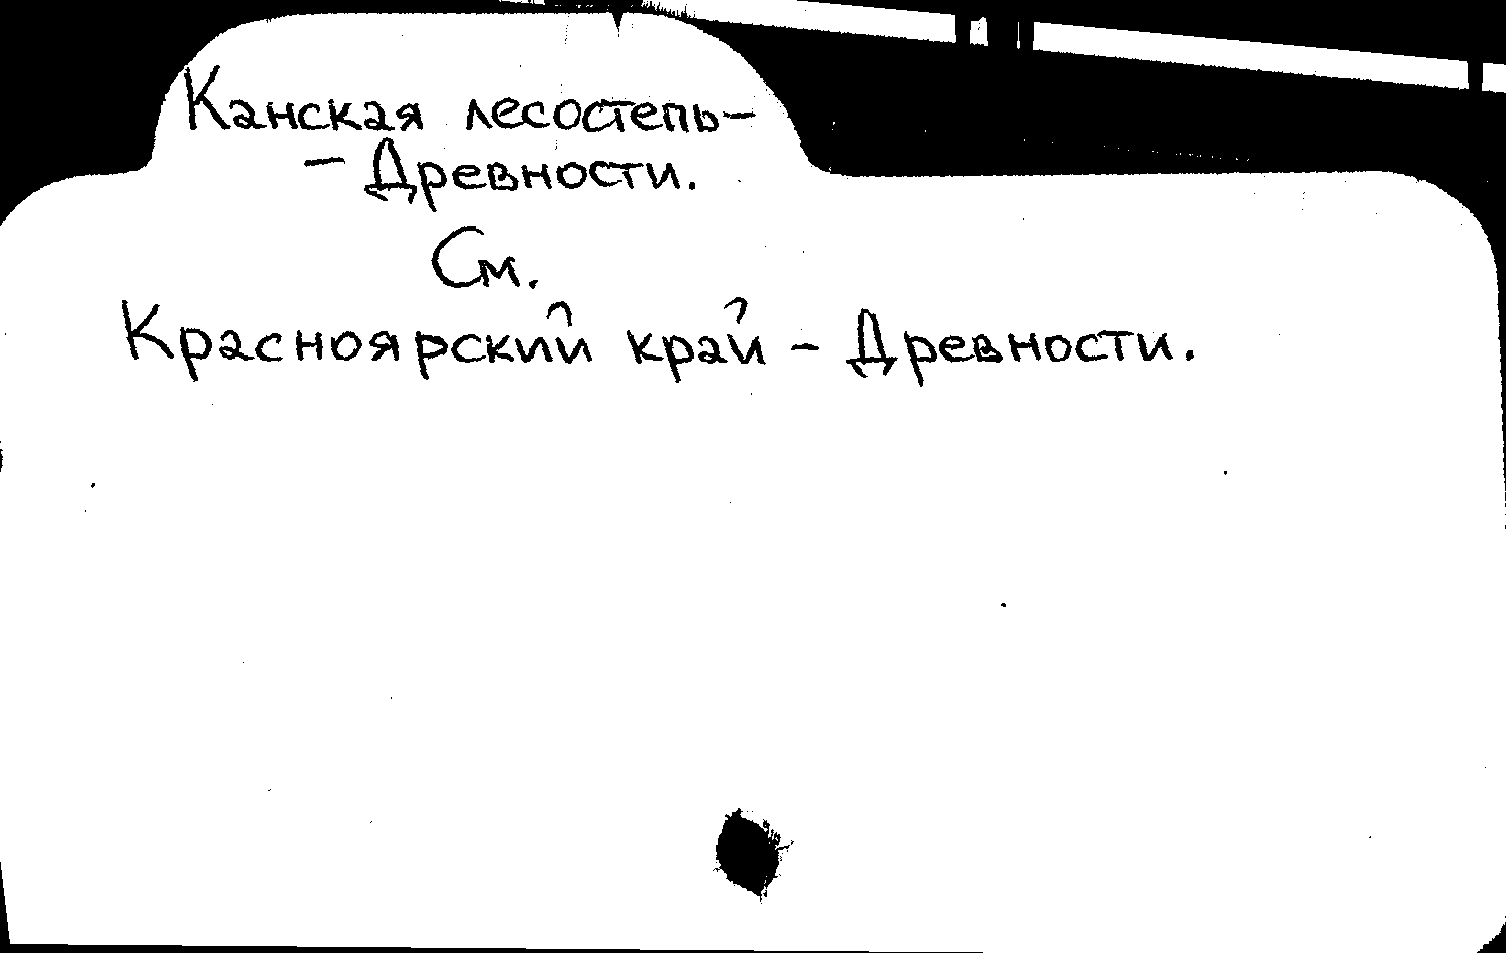 Канская лесостепь-
- Древности.
См.
Красноярский край - Древности.